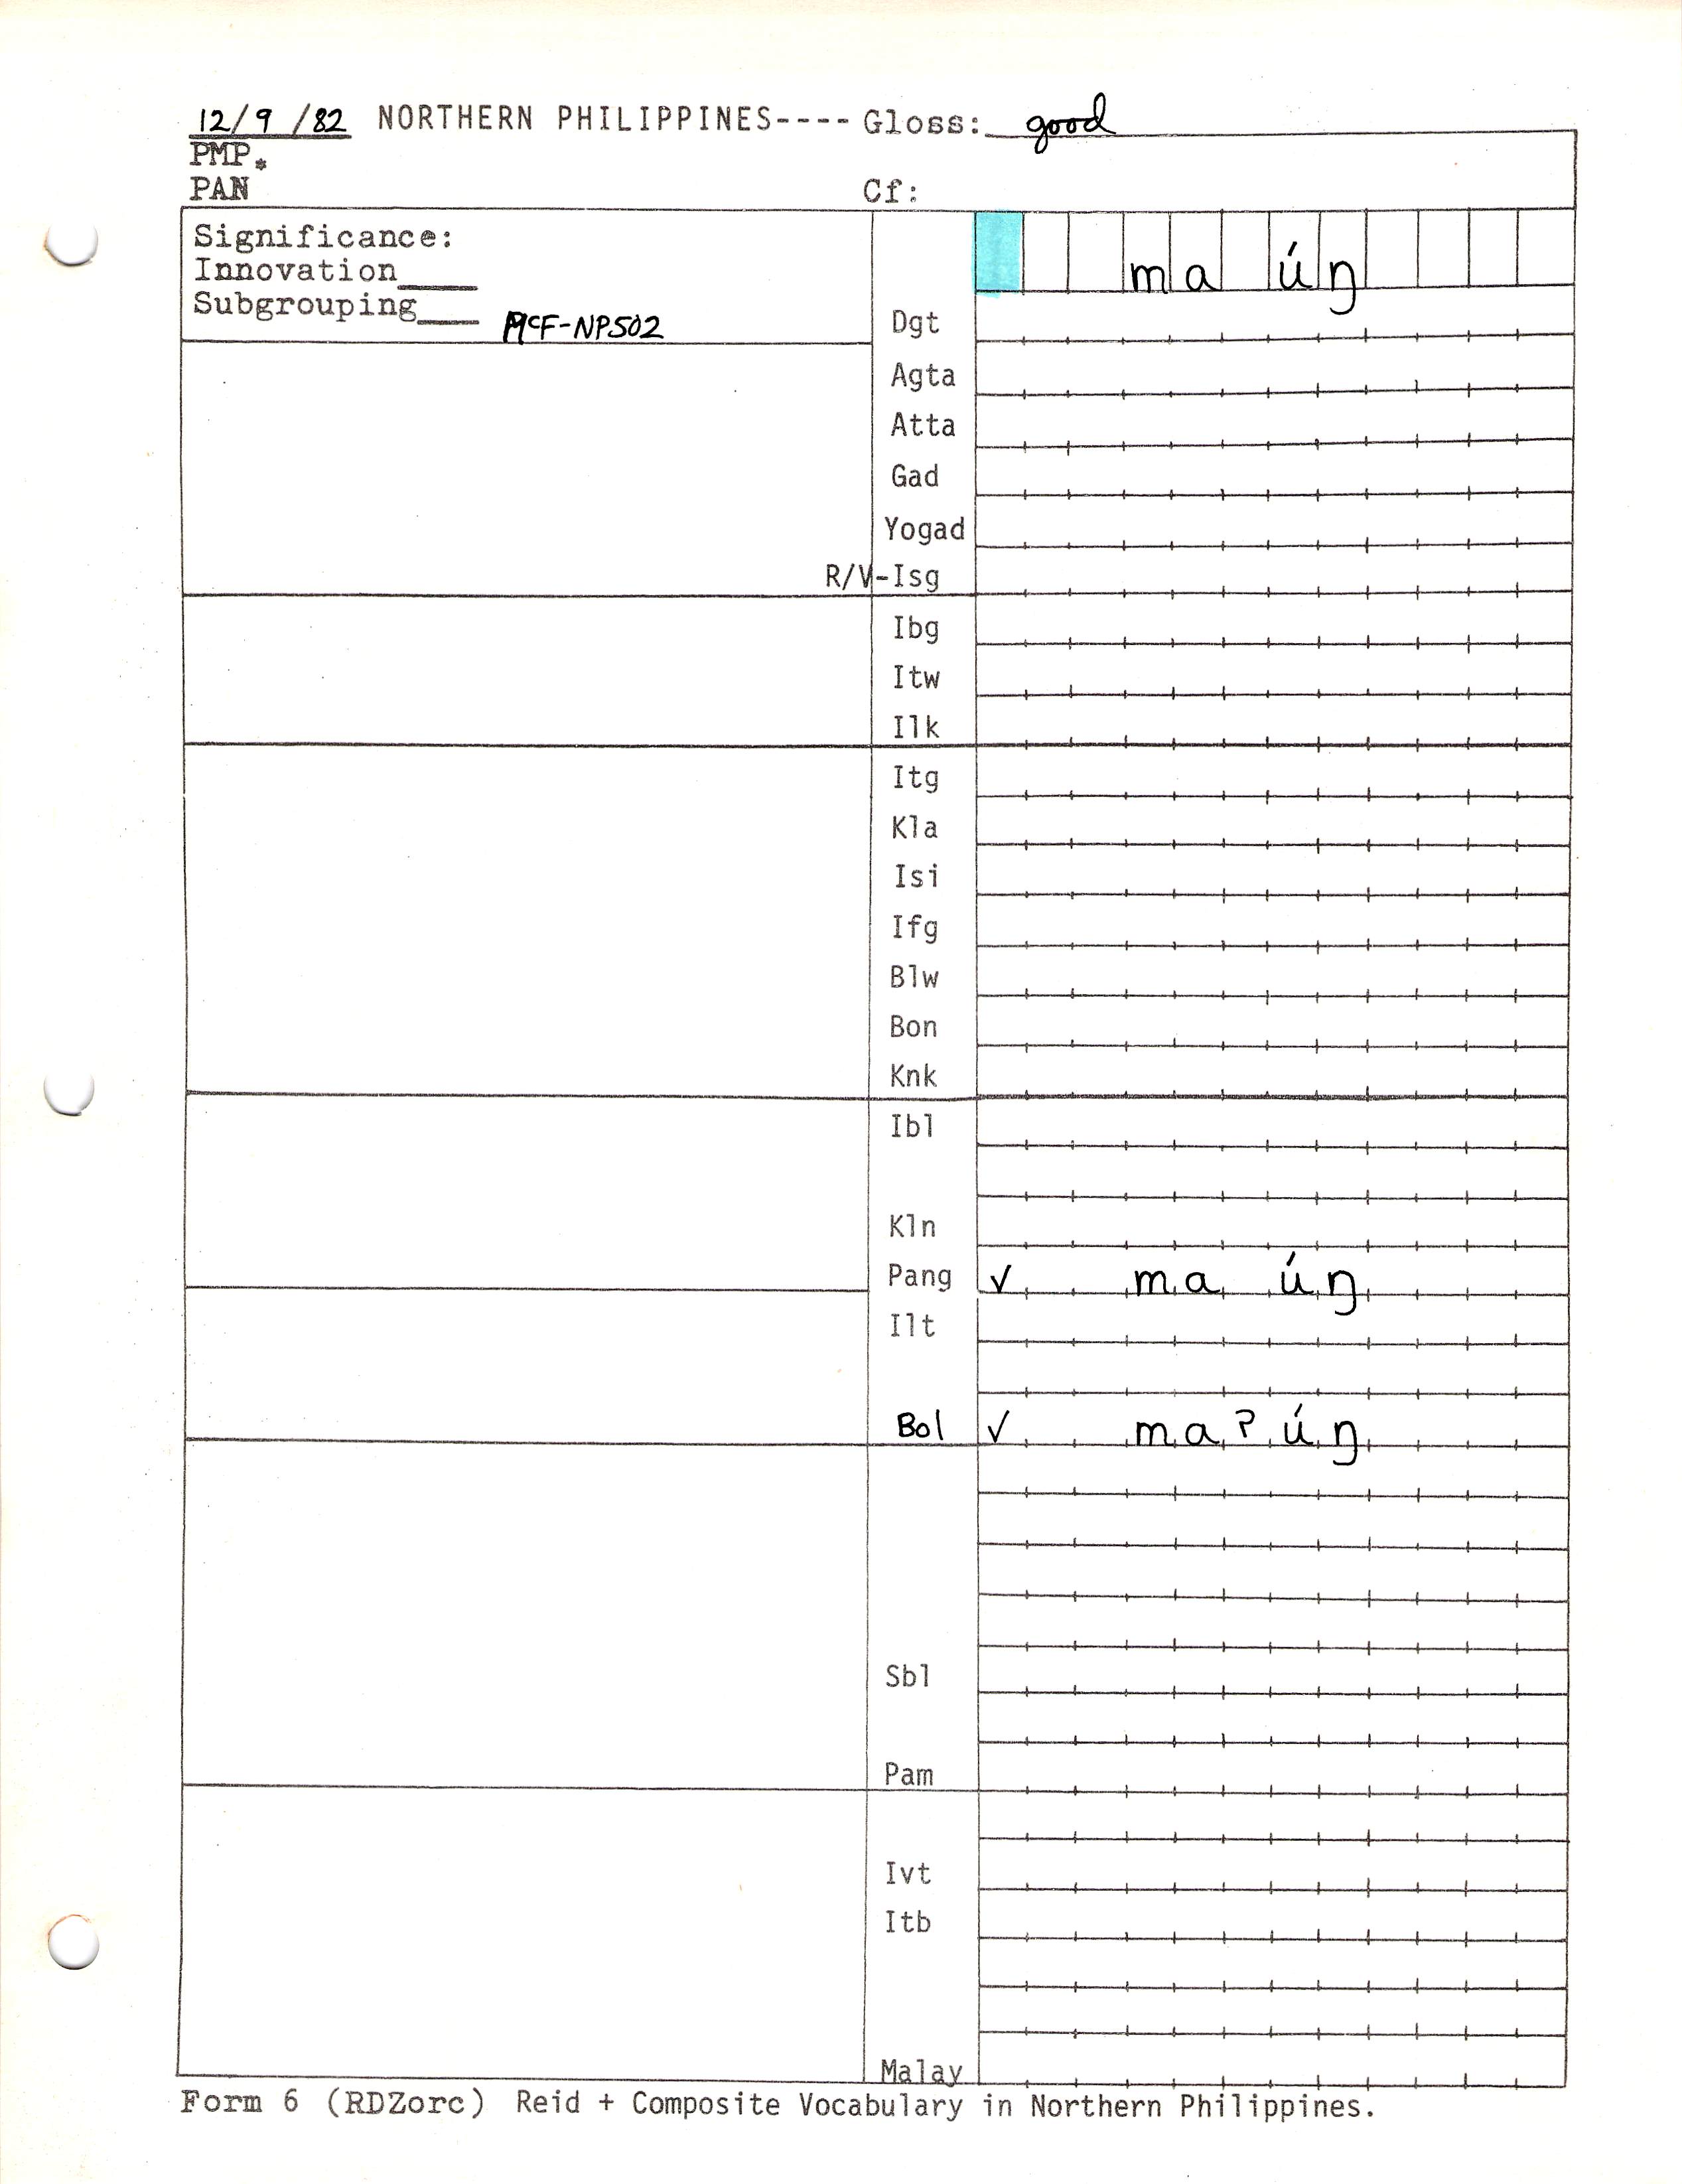 12/9/82 NORTHERN PHILIPPINES---- Gloss: good
PMP*
PAN Cf:
Significance:
Innovation____
Subgrouping____ McF-NP502
ma úŋ
Dgt
Agta
Atta
Gad
Yogad
R/V-Isg
Ibg
Itw
Ilk
Itg
Kla
Isi
Ifg
Blw
Bon
Knk
Ibl
Kln
Pang ✓ ma úŋ
Ilt
Bol ✓ maʔúŋ
Sbl
Pam
Ivt
Itb
Malay
Form 6 (RDZorc) Reid + Composite Vocabulary in Northern Philippines.